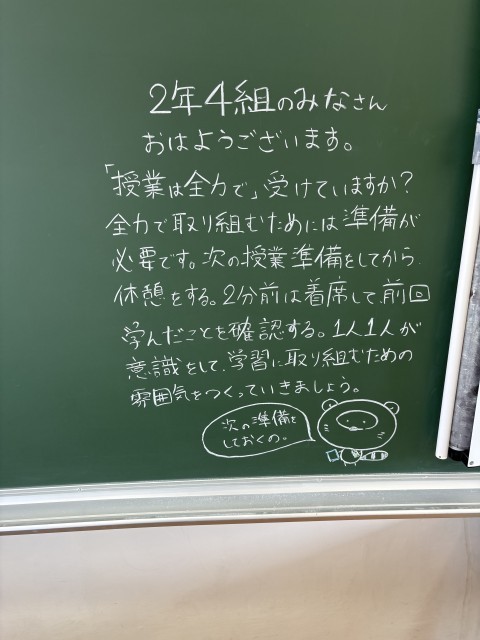 2年4組のみなさん
おはようございます。
「授業は全力で」受けていますか?
全力で取り組むためには準備が
必要です。次の授業準備をしてから
休憩をする。2分前は着席して、前回
学んだことを確認する。1人1人が
意識をして、学習に取り組むための
雰囲気をつくっていきましょう。
次の準備を
しておくの。